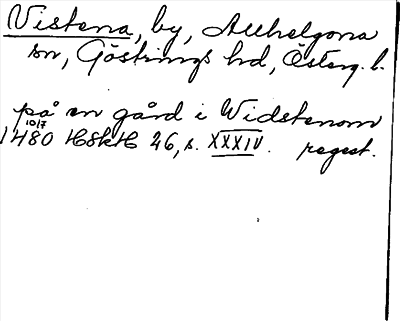 Vistena, by, Allhelgona
sn, Göstrings hd, Österg. l.
på en gård i Widstenom
10/7
1480 HSkH 26, s. XXXIV. regest.